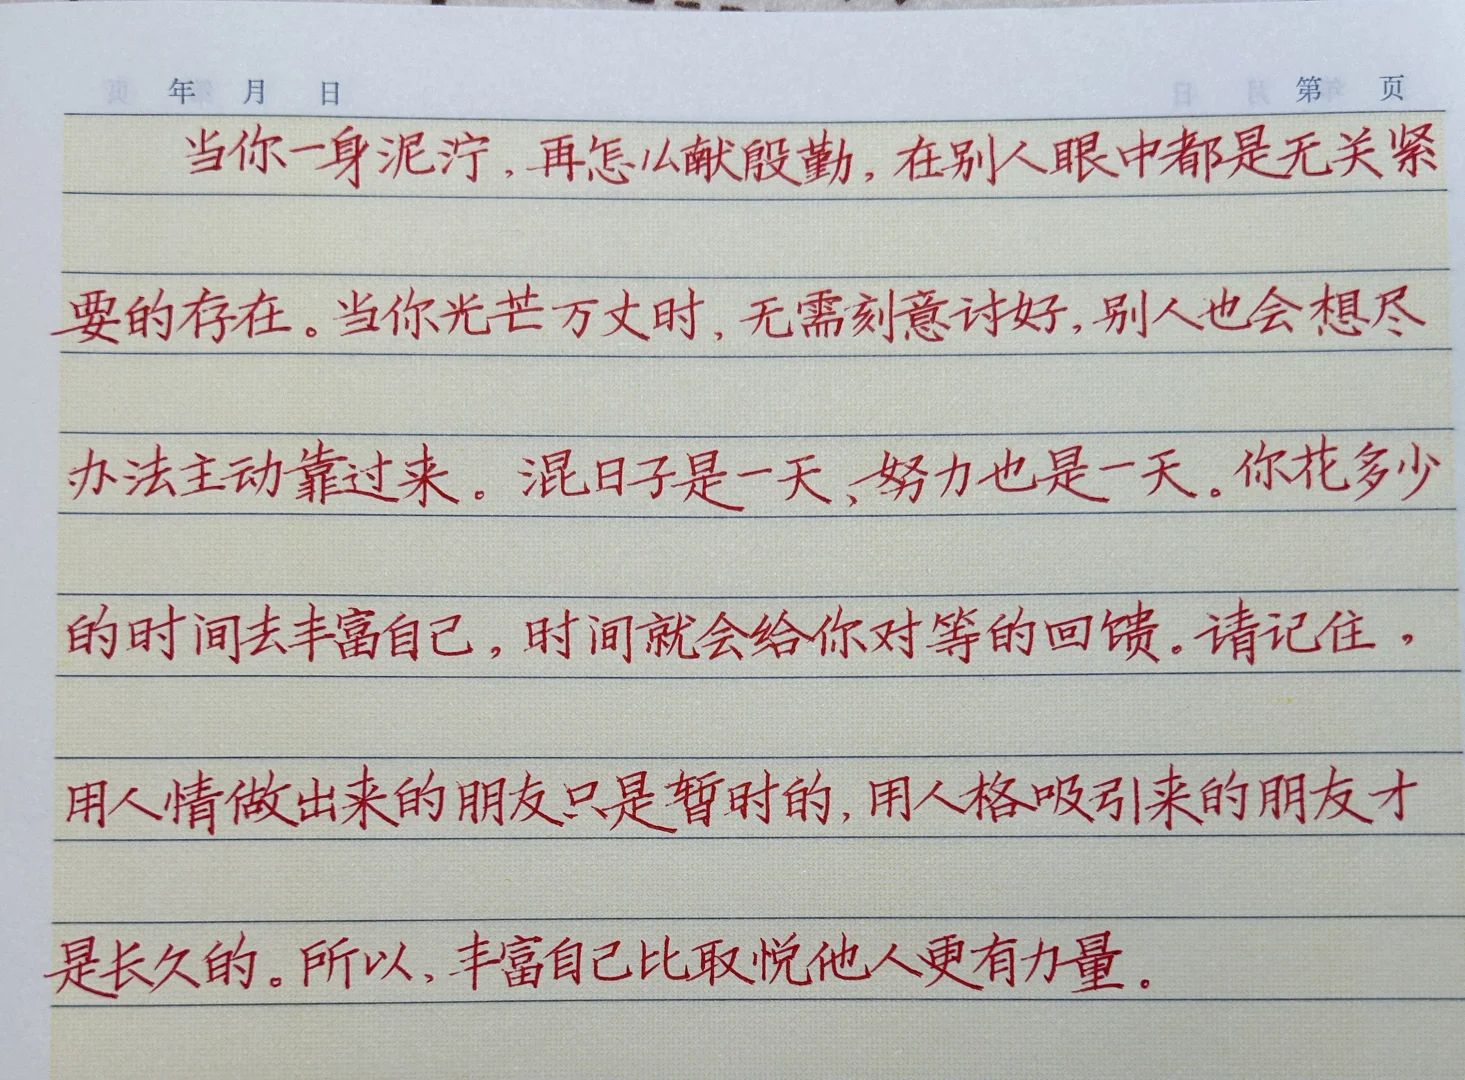 年 月 日 第 页
当你一身泥泞，再怎么献殷勤，在别人眼中都是无关紧
要的存在。当你光芒万丈时，无需刻意讨好，别人也会想尽
办法主动靠过来。混日子是一天、努力也是一天。你花多少
的时间去丰富自己，时间就会给你对等的回馈。请记住，
用人情做出来的朋友只是暂时的，用人格吸引来的朋友才
是长久的。所以，丰富自己比取悦他人更有力量。